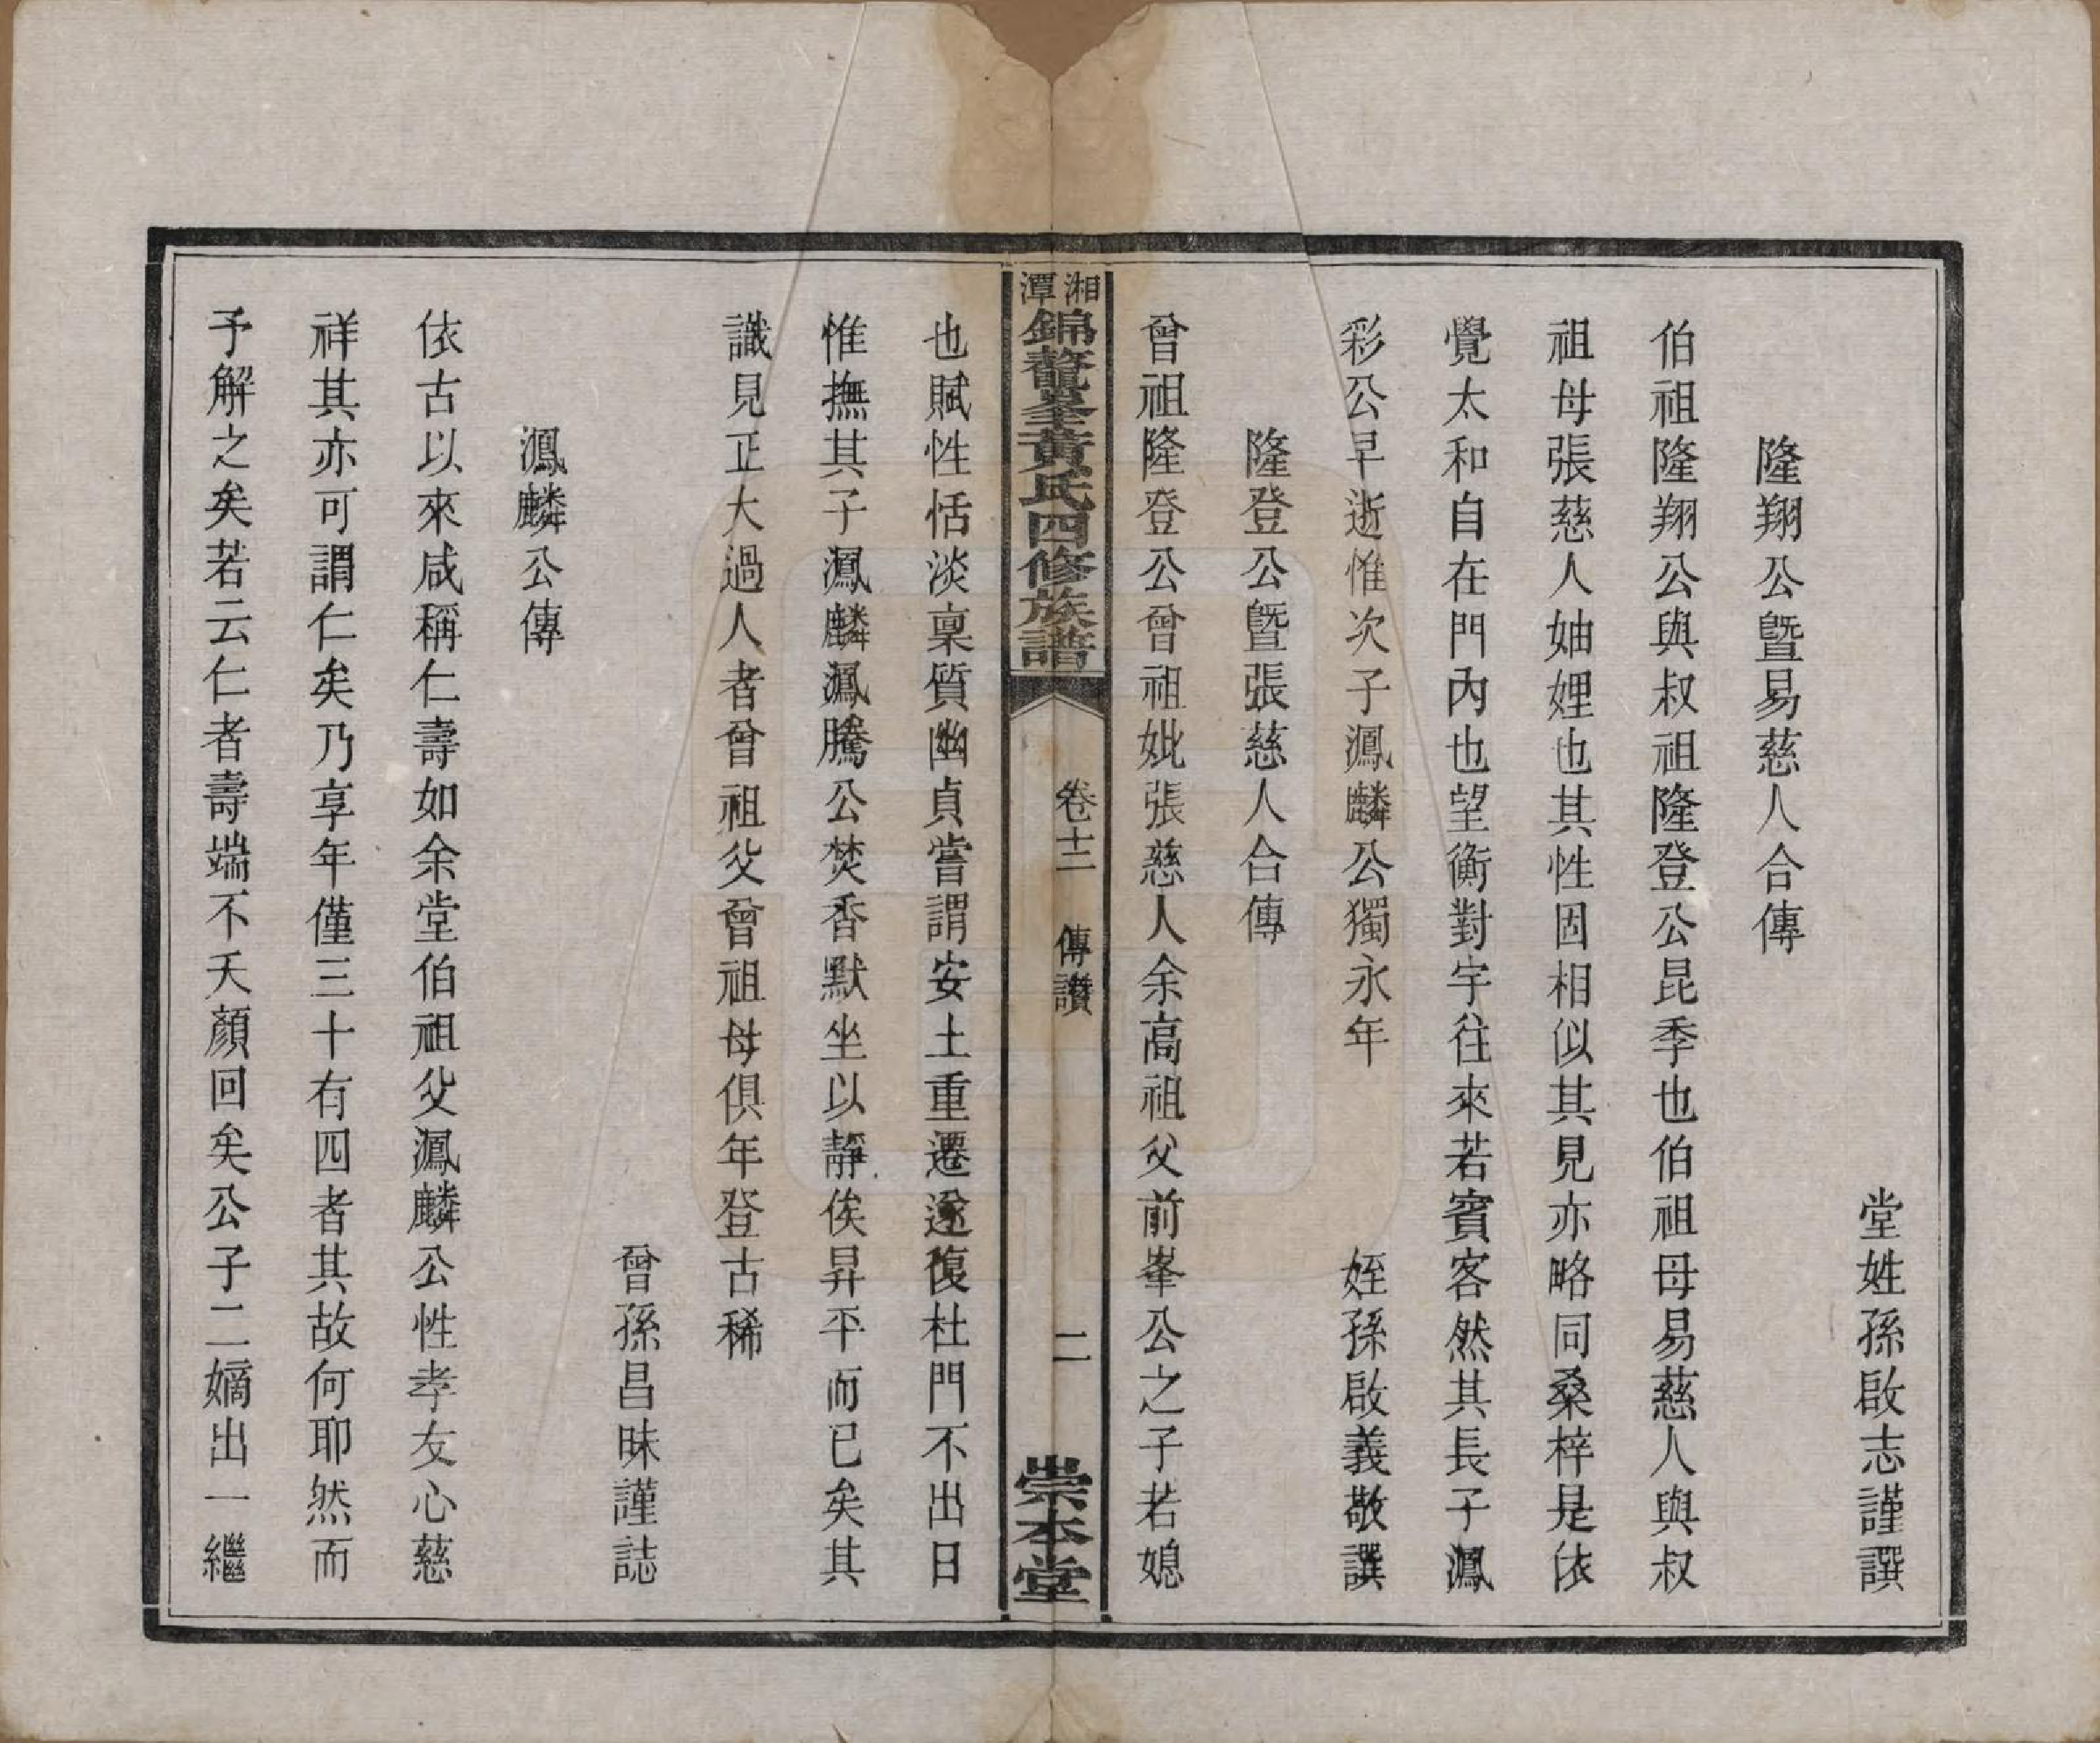 堂姪孫啟志謹譔
隆翔公暨易慈人合傳
伯祖隆翔公與叔祖隆登公昆季也伯祖母易慈人與叔
祖母張慈人妯娌也其性固相似其見亦略同桑梓是依
覺太和自在門內也望衡對宇往來若賓客然其長子鳳
彩公早逝惟次子鳳麟公獨永年
姪孫啟義敬譔
隆登公暨張慈人合傳
曾祖隆登公曾祖妣張慈人余高祖父前峯公之子若媳
湘潭錦鼇黃氏四修族譜
卷十二 傳讚
二
崇本堂
也賦性恬淡稟質幽貞嘗謂安土重遷遂復杜門不出日
惟撫其子鳳麟鳳騰公焚香默坐以靜俟昇平而已矣其
識見正大過人者曾祖父曾祖母俱年登古稀
曾孫昌昧謹誌
鳳麟公傳
依古以來咸稱仁壽如余堂伯祖父鳳麟公性孝友心慈
祥其亦可謂仁矣乃享年僅三十有四者其故何耶然而
予解之矣若云仁者壽端不夭顏回矣公子二嫡出一繼